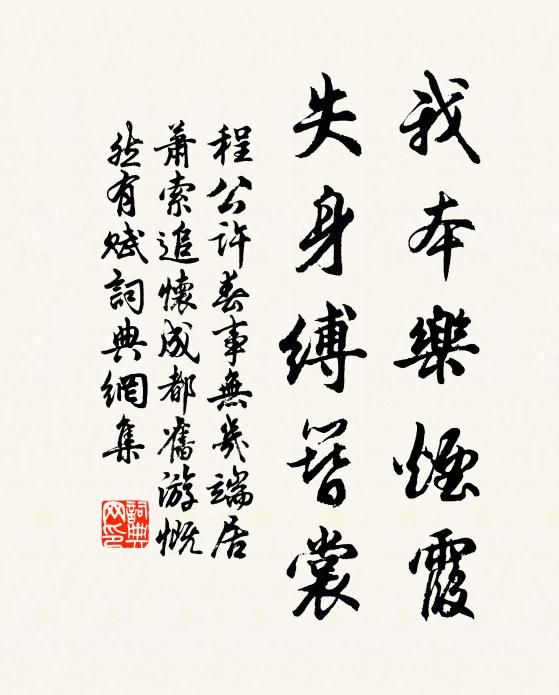 我本樂煙霞
失身縛簪裳
程公許春事無幾端居
蕭索追懷成都舊游慨
然有賦詞典網集
詞典网印